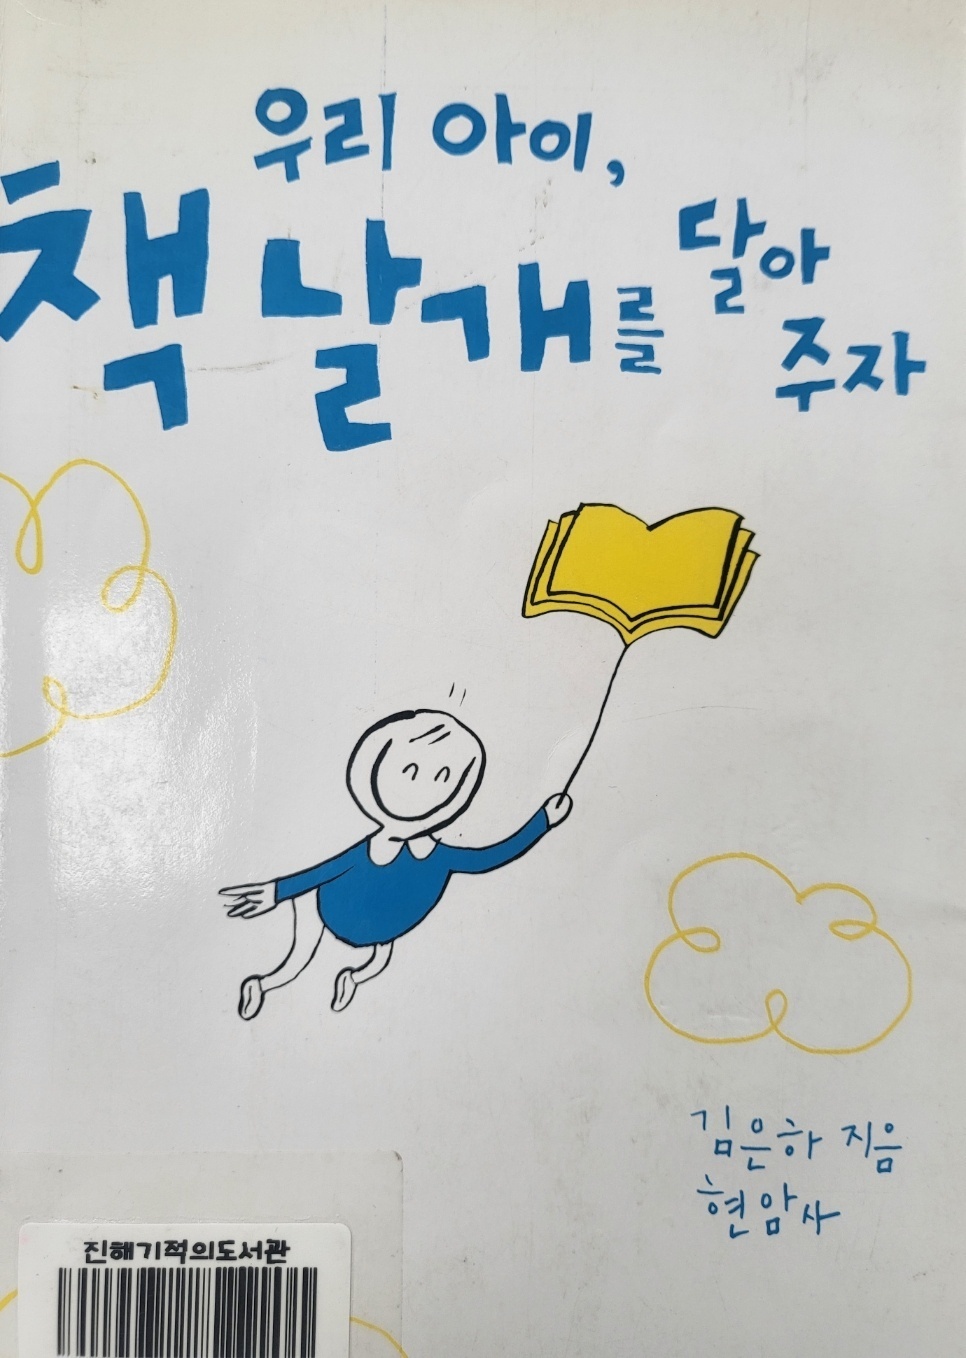 우리 아이,
책날개를 달아
주자
김은하 지음
현암사
진해기적의도서관